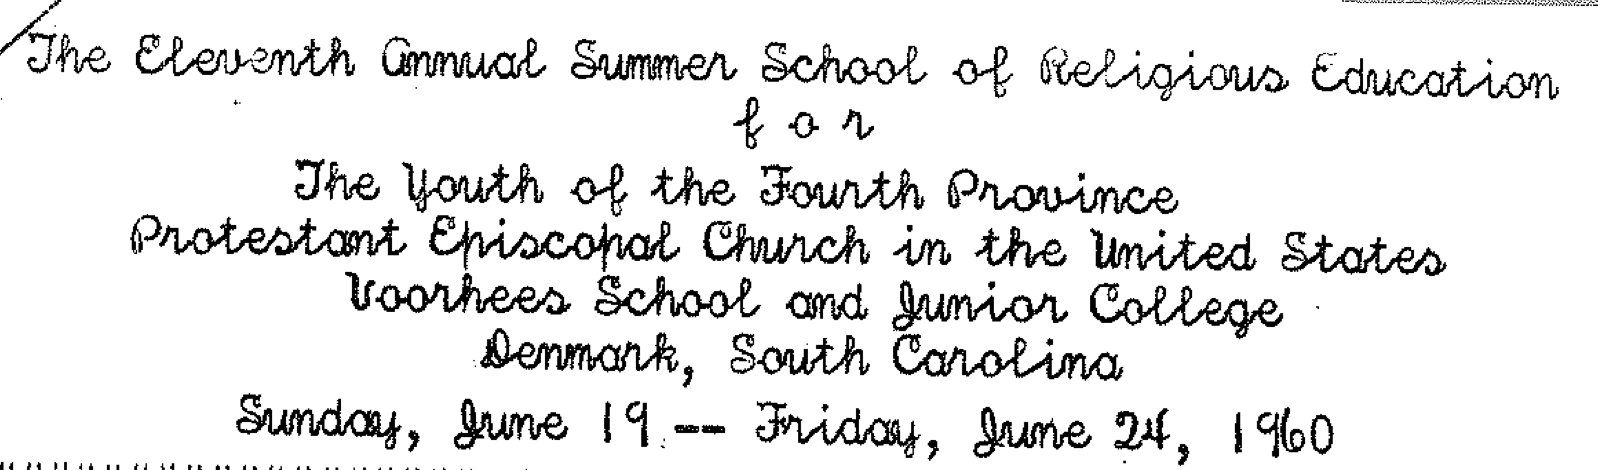 The Eleventh Annual Summer School of Religious Education
f o r
The Youth of the Fourth Province
Protestant Episcopal Church in the United States
Voorhees School and Junior College
Denmark, South Carolina
Sunday, June 19 -- Friday, June 24, 1960